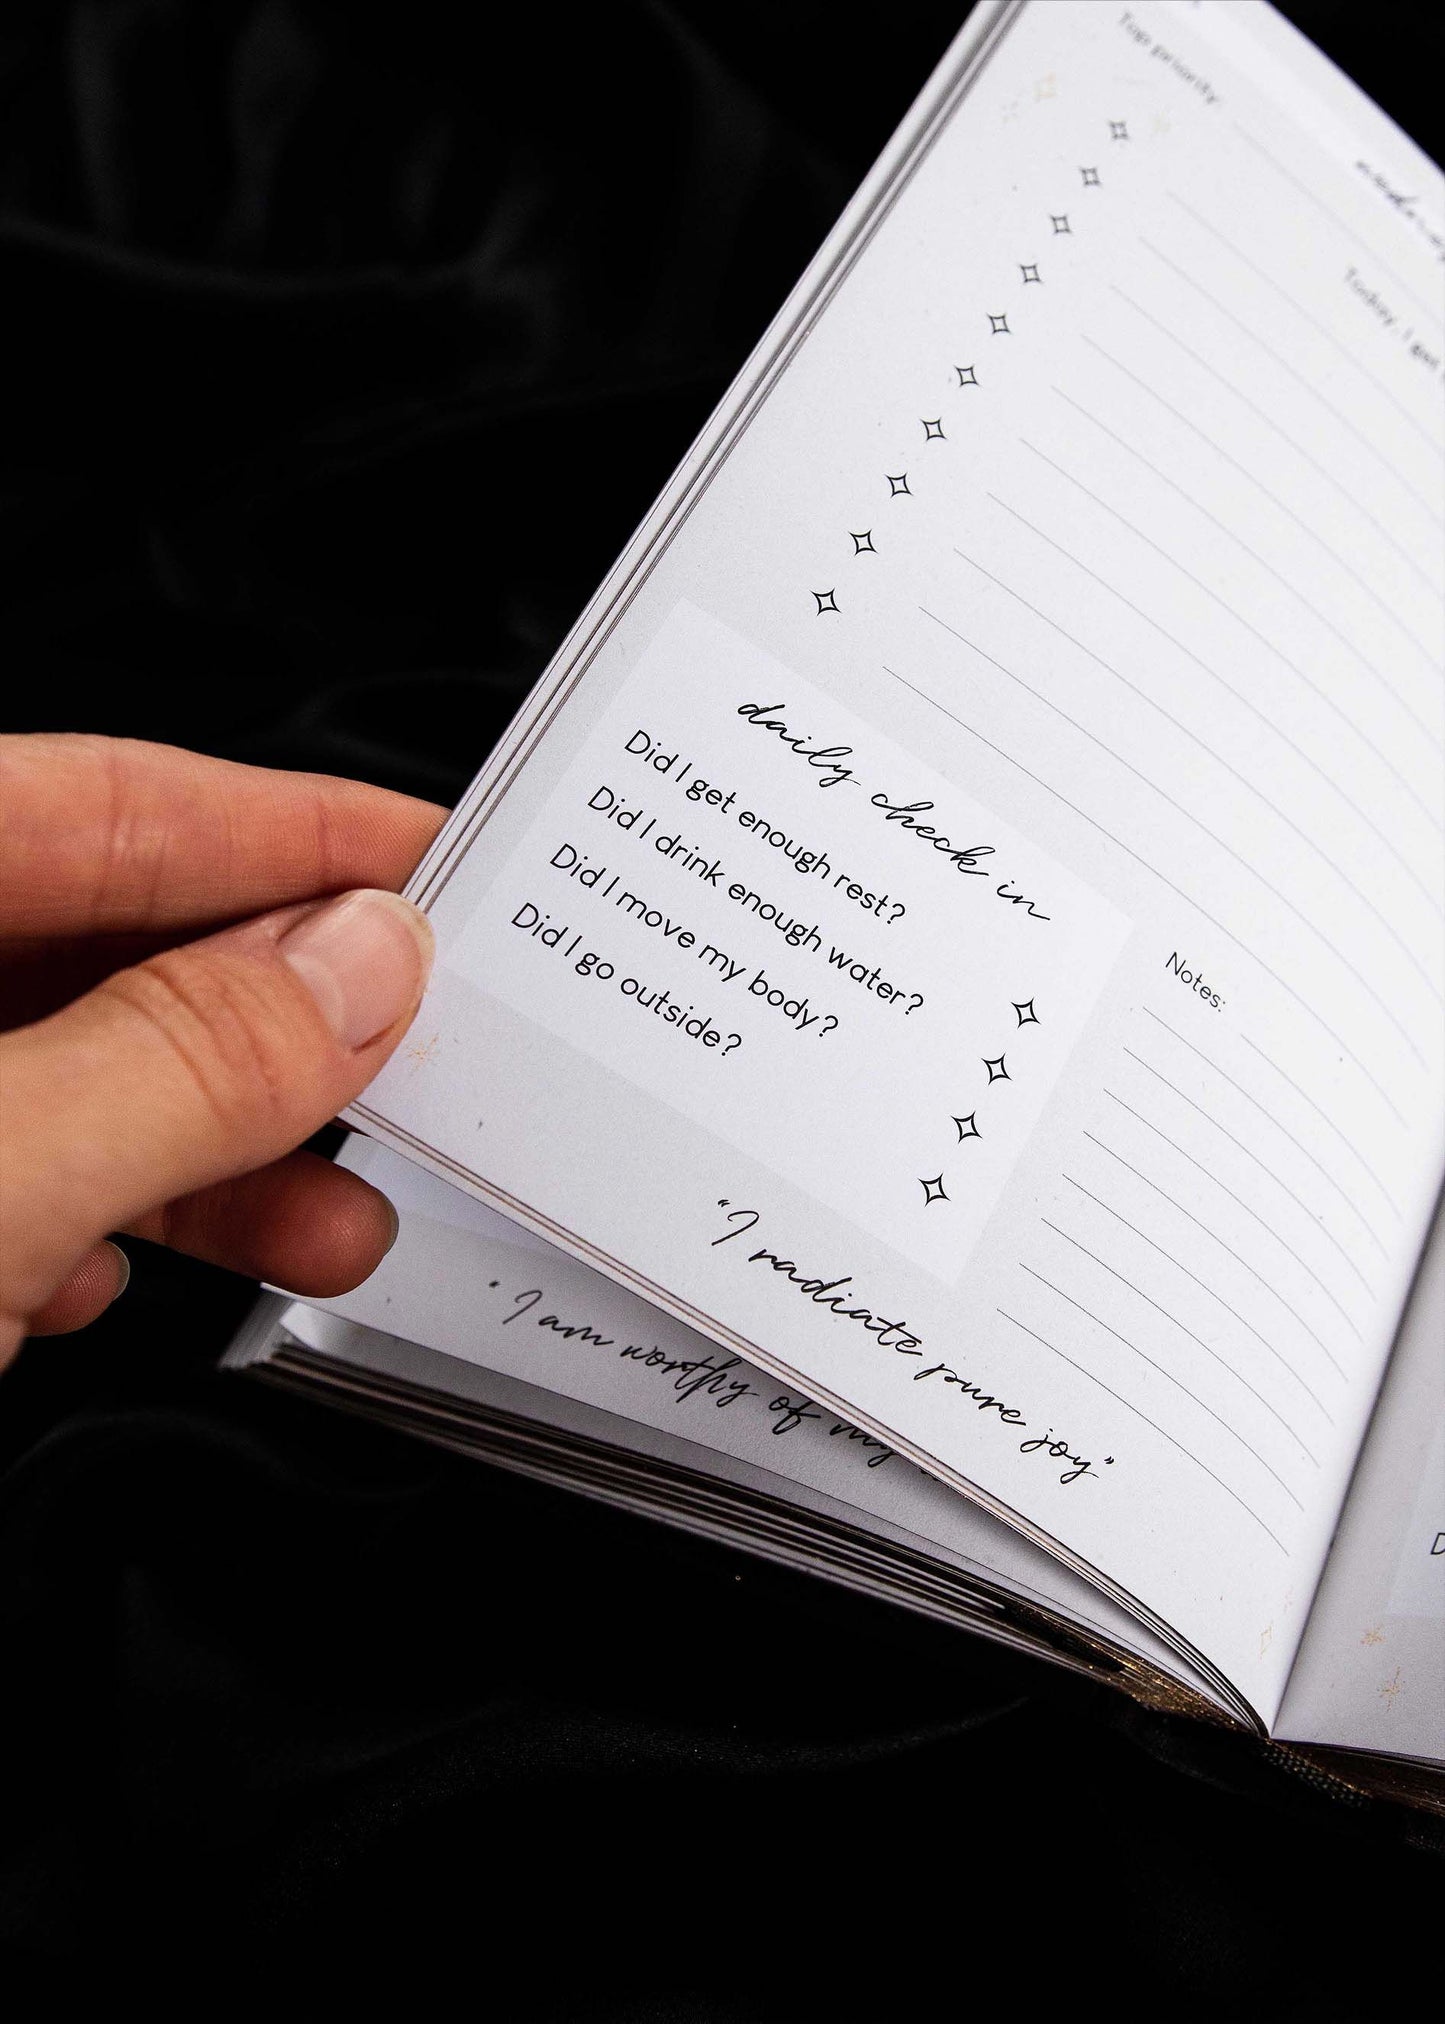 Top priority
Today, I get
daily check in
Did I get enough rest?
Did I drink enough water?
Did I move my body?
Did I go outside?
Notes:
"I radiate pure joy"
"I am worthy of my
D